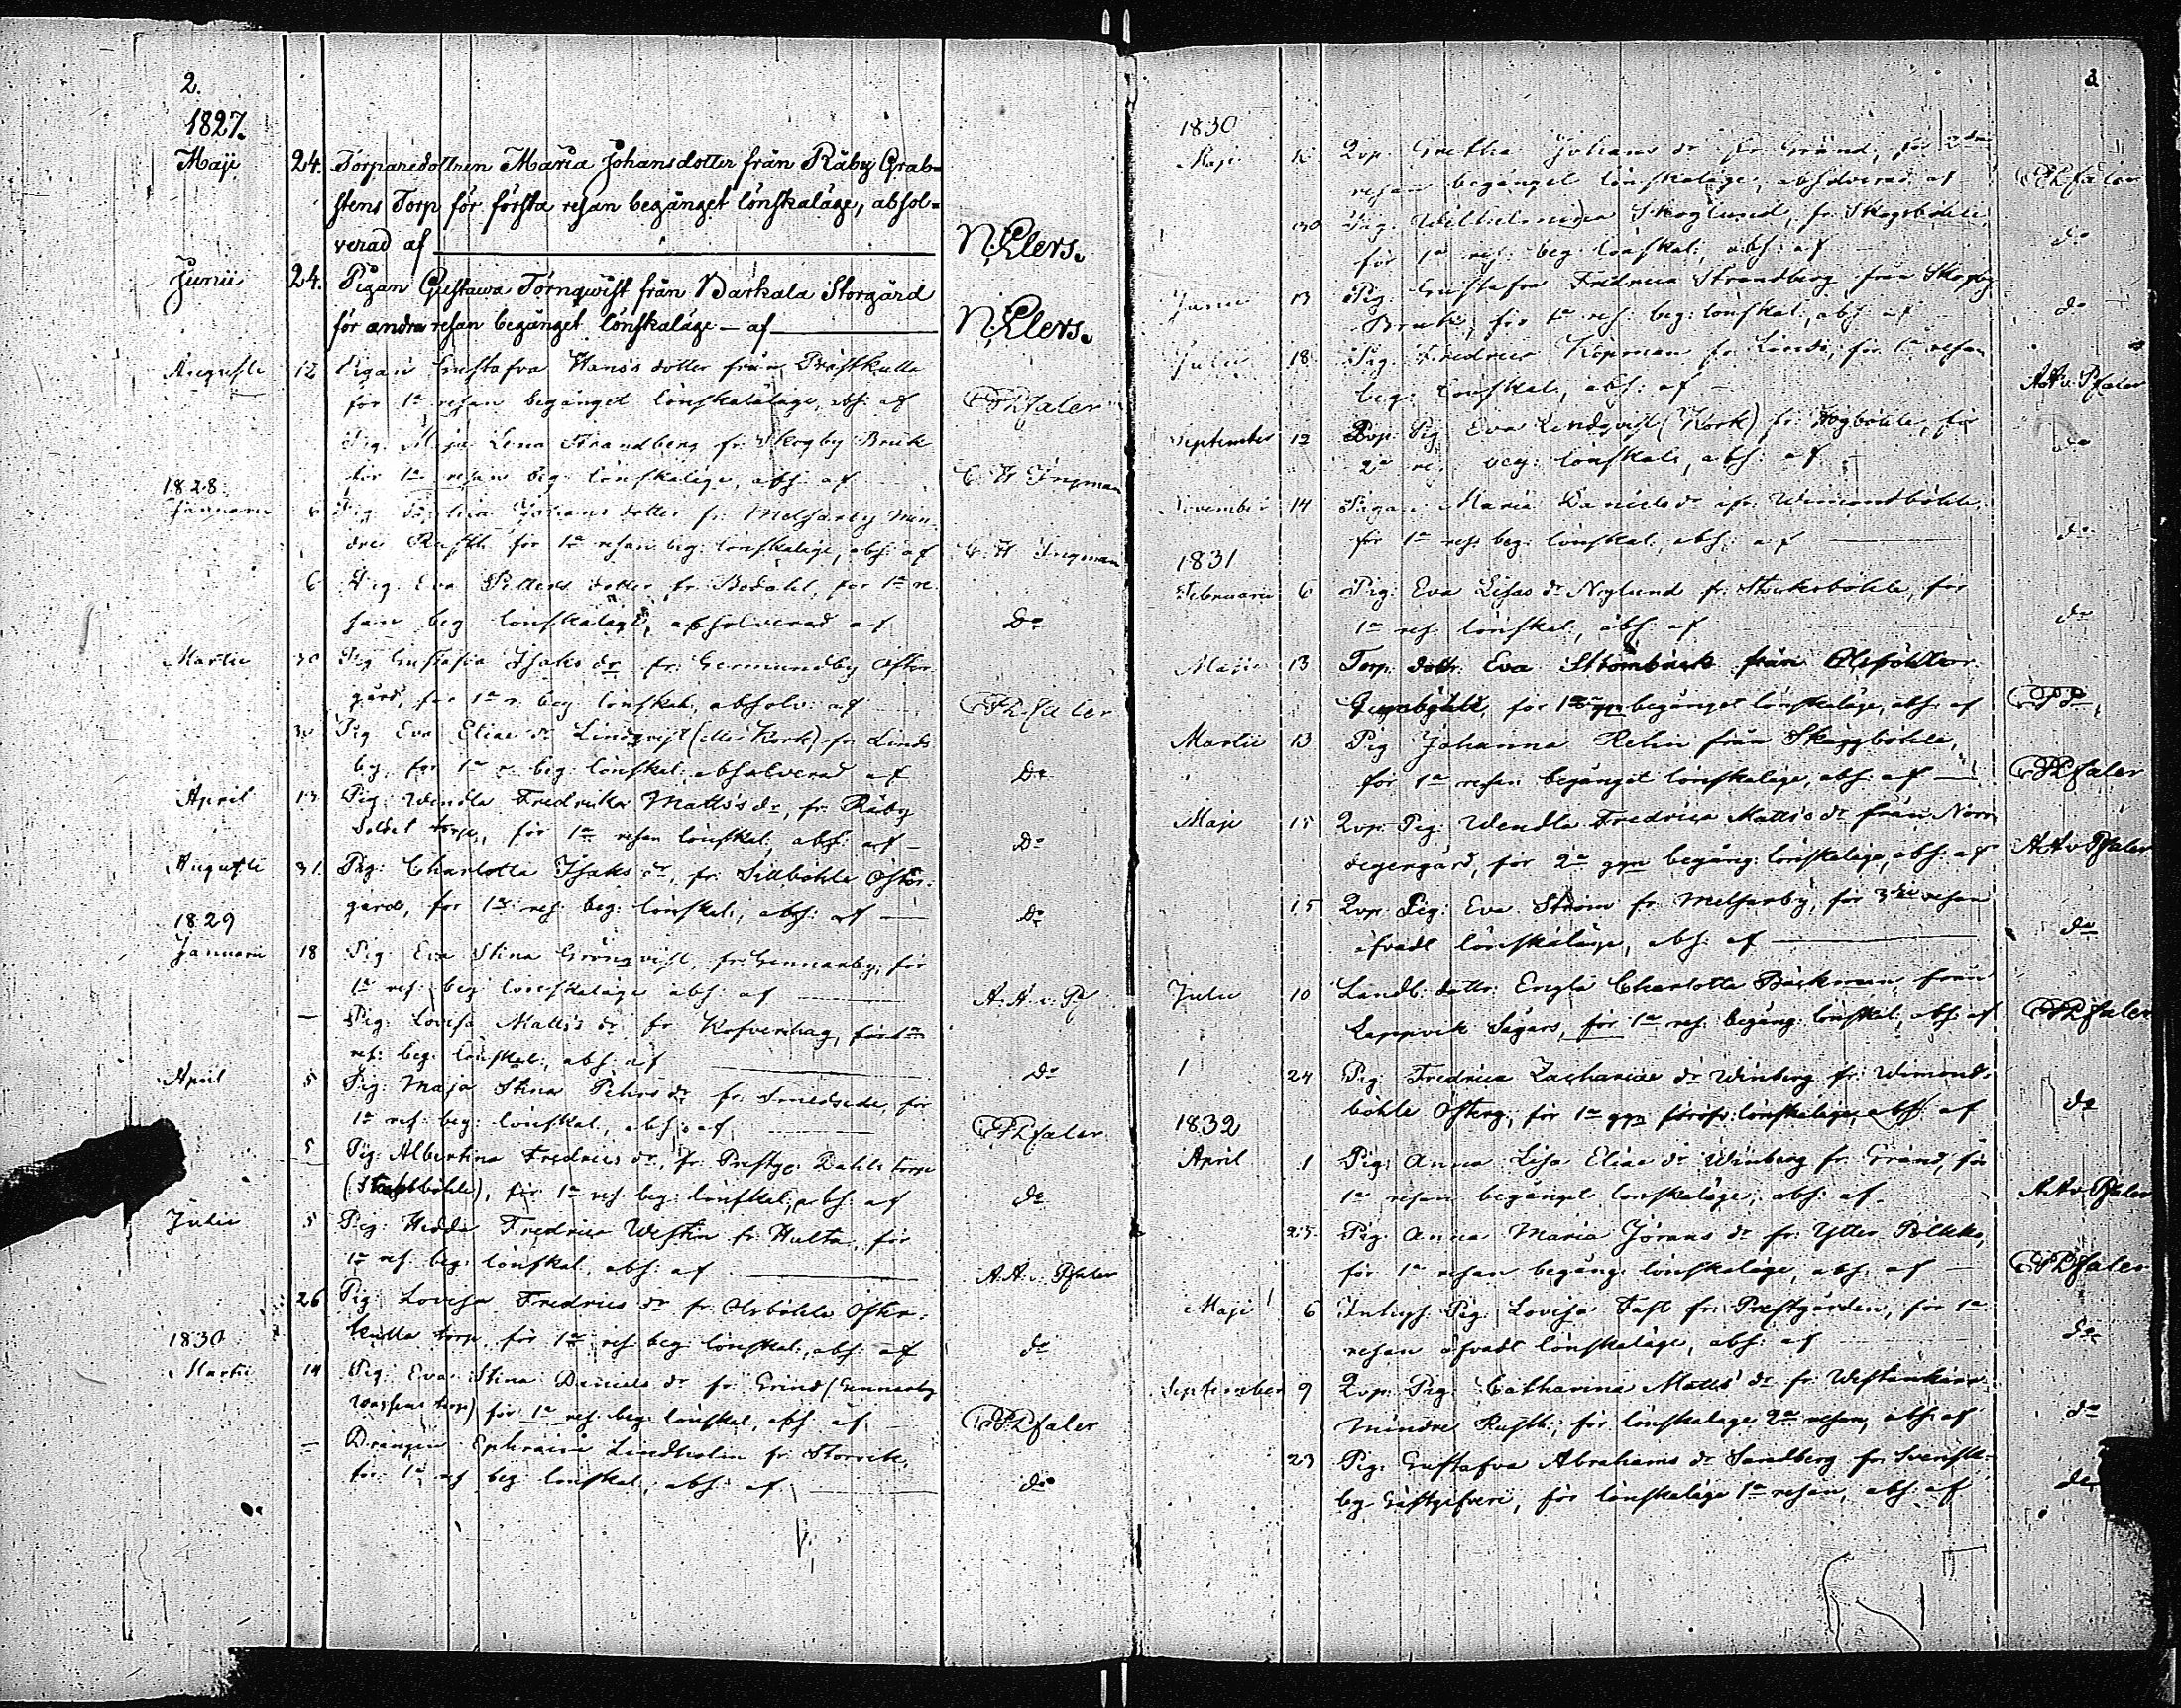 2.
1827.
Maji 24. Torparedottren Maria Johansdotter från Råby Grab=
stens Torp för första resan begånget lönskaläge, absol=
verad af N. Elers.
Junii 24. Pigan Gustawa Törnqwist från Barkala Storgård
för andra resan begånget lönskaläge – af N. Elers.
Augusti 12 Pigan Gustafva Hans's dotter från Prästkulla
för 1a resan begånget lönskaläge, abs: af
Pig. Maja Lena Strandberg fr. Skogby Bruk
för 1a resan beg. lönskaläge, abs: af C H Ingman
1828.
Januarii 6 Pig. Johans dotter fr. Melsarby Min
dre Rusth. för 1a resan beg: lönskaläge, abs: af C. H Ingman
6 Pig. Eva Petters dotter fr. Bodahl, för 1a re
san beg lönskaläge, absolverad af Do
Martii 30 Pig Gustafva Isaks dr fr: Germundby Öster
gård, för 1a r. beg lönskal:, absolv: af
30 Pig Eva Eliae dr Lindqvist (eller Kork) fr. Linds
by, för 1a r. beg: lönskal: absolverad af Do
April 13 Pig: Wendla Fredrika Matts's dr, fr: Råby
Soldat torp, för 1a resan lönskal:, abs: af – Do
Augusti 31. Pig: Charlotta Isaks dr, fr: Sillböhle Öster-
gård, för 1a res: beg: lönskal:, abs: af – Do
1829
Januarii 18 Pig: Eva Stina Grönqvist, fr: Gennarby, för
1a res: beg lönskaläge abs: af A. A. v. Pf
– Pig: Lovisa Matts's dr fr Kofverhag, för 1a
res: beg: lönskal:, abs: af Do
April 5 Pig: Maja Stina Pehrs dr fr. Smedsede, för
1a res: beg: lönskal:, abs: af
5 Pig: Albertina Fredrics dr, fr: Prestgs Dahls torp
för 1a res: beg: lönskal:, abs: af do
Julii 5 Pig: Hedda Fredrica Westin fr: Hulta, för
1a res: beg: lönskal: abs: af A A. v. Pfaler
26 Pig: Lovisa Fredrics dr fr: Olsböhle Öster-
kulla torp, för 1a res: beg: lönskal:, abs: af do
1830
Martii 14 Pig: Eva Stina Daniels dr fr Grind (Gennarby
torp) för 1a res: beg: lönskal, abs: af –
– Drängen Ephraim Lindholm fr Storvik,
för 1a res beg lönskal:, abs: af do
1830
Maji Qvp: Gretha Johans dr fr Gränd, för 2dra
resan begånget lönskaläge, absolverad af
30 Pig. Wilhelmina Skoglund, fr. Skogsböhle
för 1a res: beg: lönskal:, abs: af do
Junii 13 Pig: Gustafva Fredrica Strandberg från Skogby
Bruk, för 1a res: beg: lönskal:, abs: af do
Julii 18 Pig: Fredrica Köpman fr Lindö, för 1a resan
beg: lönskal:, abs: af – A A v. Pfaler
September 12 Qvp: Pig: Eva Lindqvist (Kork) fr: Högböhle, för
2a res beg: lönskal:, abs: af – do
November 14 Pigan Maria Daniels dr fr. Wimontböhle
för 1a res: beg: lönskal:, abs: af do
1831
Februarii 6 Pig: Eva Lisas dr Nylund fr:
för
1a res. lönskal:, abs: af do
Maji 13 Torp. dottr. Eva Strömbäck från
för begånget lönskaläge, abs: af
Martii 13 Pig Johanna Helin från Skäggböhle,
för 1a resan begånget lönskaläge, abs: af –
Maji 15 Qvp: Pig: Wendla Fredrica Matts's dr från Norr
degergård, för 2a ggn begång: lönskaläge, abs: af A A v Pfaler
15 Qvp: Pig: Eva Ström fr: Melsarby, för 3die resan
öfvadt lönskaläge, abs: af do
Julii 10 Landb: dottr: Engla Charlotta Bäckman från
Lappvik Sågars, för 1a res: begång: lönskal:, abs: af
24 Pig: Fredrica Zachariae dr Winberg fr: Wimonds
böhle Österg:, för 1a ggn lönskaläge, abs: af do
1832
April 1 Pig: Anna Lisa Eliae dr Winberg fr Gränd, för
1a resan begånget lönskaläge, abs: af A A v Pfaler
25 Pig: Anna Maria Jörans dr fr: Ytter Pölkko,
för 1a resan begång: lönskaläge, abs: af –
Maji 6 Inhys: Pig: Lovisa Fast fr: Prestgården, för 1a
resan öfvadt lönskaläge, abs: af do
September 9 Qvp: Pig: Catharina Matts' dr fr Westankärr
Mindre Rusth:, för lönskaläge 2a resan, abs: af do
23 Pig: Gustafva Abrahams dr Sandberg fr. Svensk-
by Gästgifveri, för lönskaläge 1a resan, abs: af do